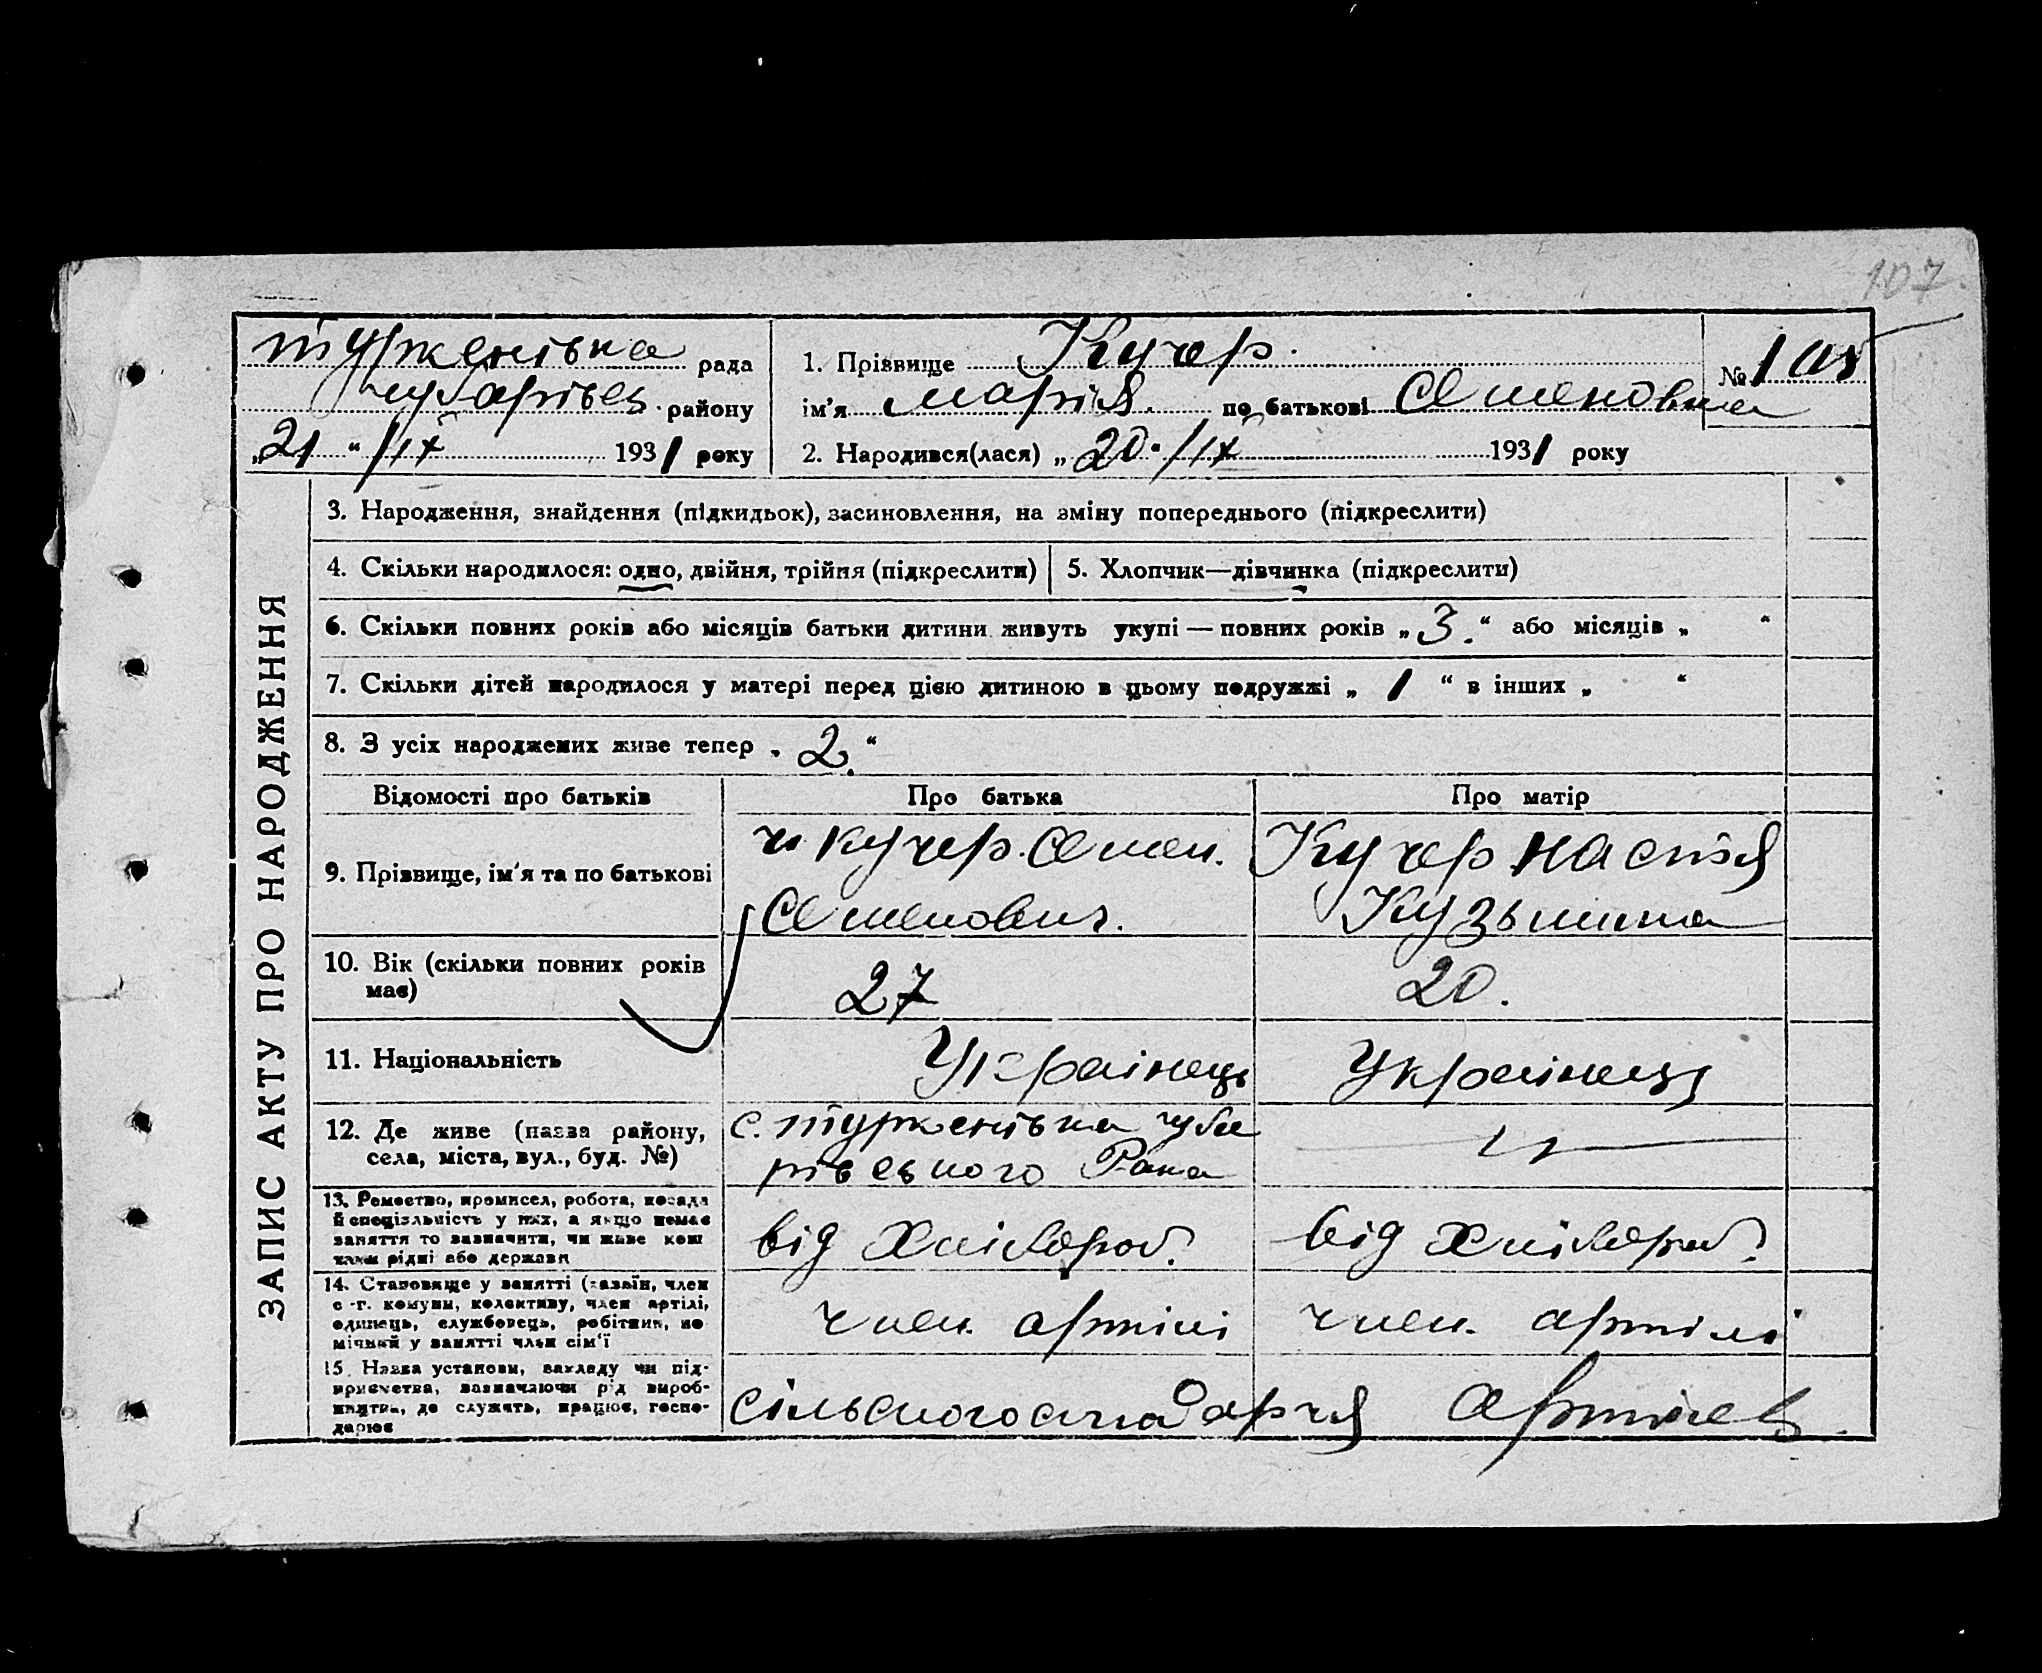 107.
Туркенівка рада
Чубарівсь. району
„21“ /IX 1931 року
1. Прізвище Кучер.
№ 105
ім’я Марія. по батькові Семеновна
2. Народився(лася) „20“ /IX 1931 року
ЗАПИС АКТУ ПРО НАРОДЖЕННЯ
3. Народження, знайдення (підкидьок), засиновлення, на зміну попереднього (підкреслити)
4. Скільки народилося: одно, двійня, трійня (підкреслити)
5. Хлопчик—дівчинка (підкреслити)
6. Скільки повних років або місяців батьки дитини живуть укупі — повних років „3.“ або місяців „ “
7. Скільки дітей народилося у матері перед цією дитиною в цьому подружжі „ 1 “ в інших „ “
8. З усіх народжених живе тепер „ 2. “
Відомості про батьків
Про батька
Про матір
9. Прізвище, ім’я та по батькові
Кучер. Семен.
Семенович.
Кучер Настя
Кузьмина
10. Вік (скільки повних років
має)
27
20.
11. Національність
Украінець
Украінець
12. Де живе (назва району,
села, міста, вул., буд. №)
с. Туркенівка Чуба
рівського Рана
13. Ремество, промисел, робота, посада
й спеціяльність у них, а якщо немає
заняття то зазначити, чи живе кош
тами рідні або держави
від хлібороб.
від хлібороб.
14. Становище у занятті (хазаїн, член
с.-г. комуни, колективу, член артілі,
одинець, службовець, робітник, по
мічний у занятті член сім’ї
член. артілі
член. артілі
15. Назва установи, закладу чи під-
приємства, зазначаючи рід вироб-
ництва, де служать, працює, госпо-
дарює
сільськогосподарчя